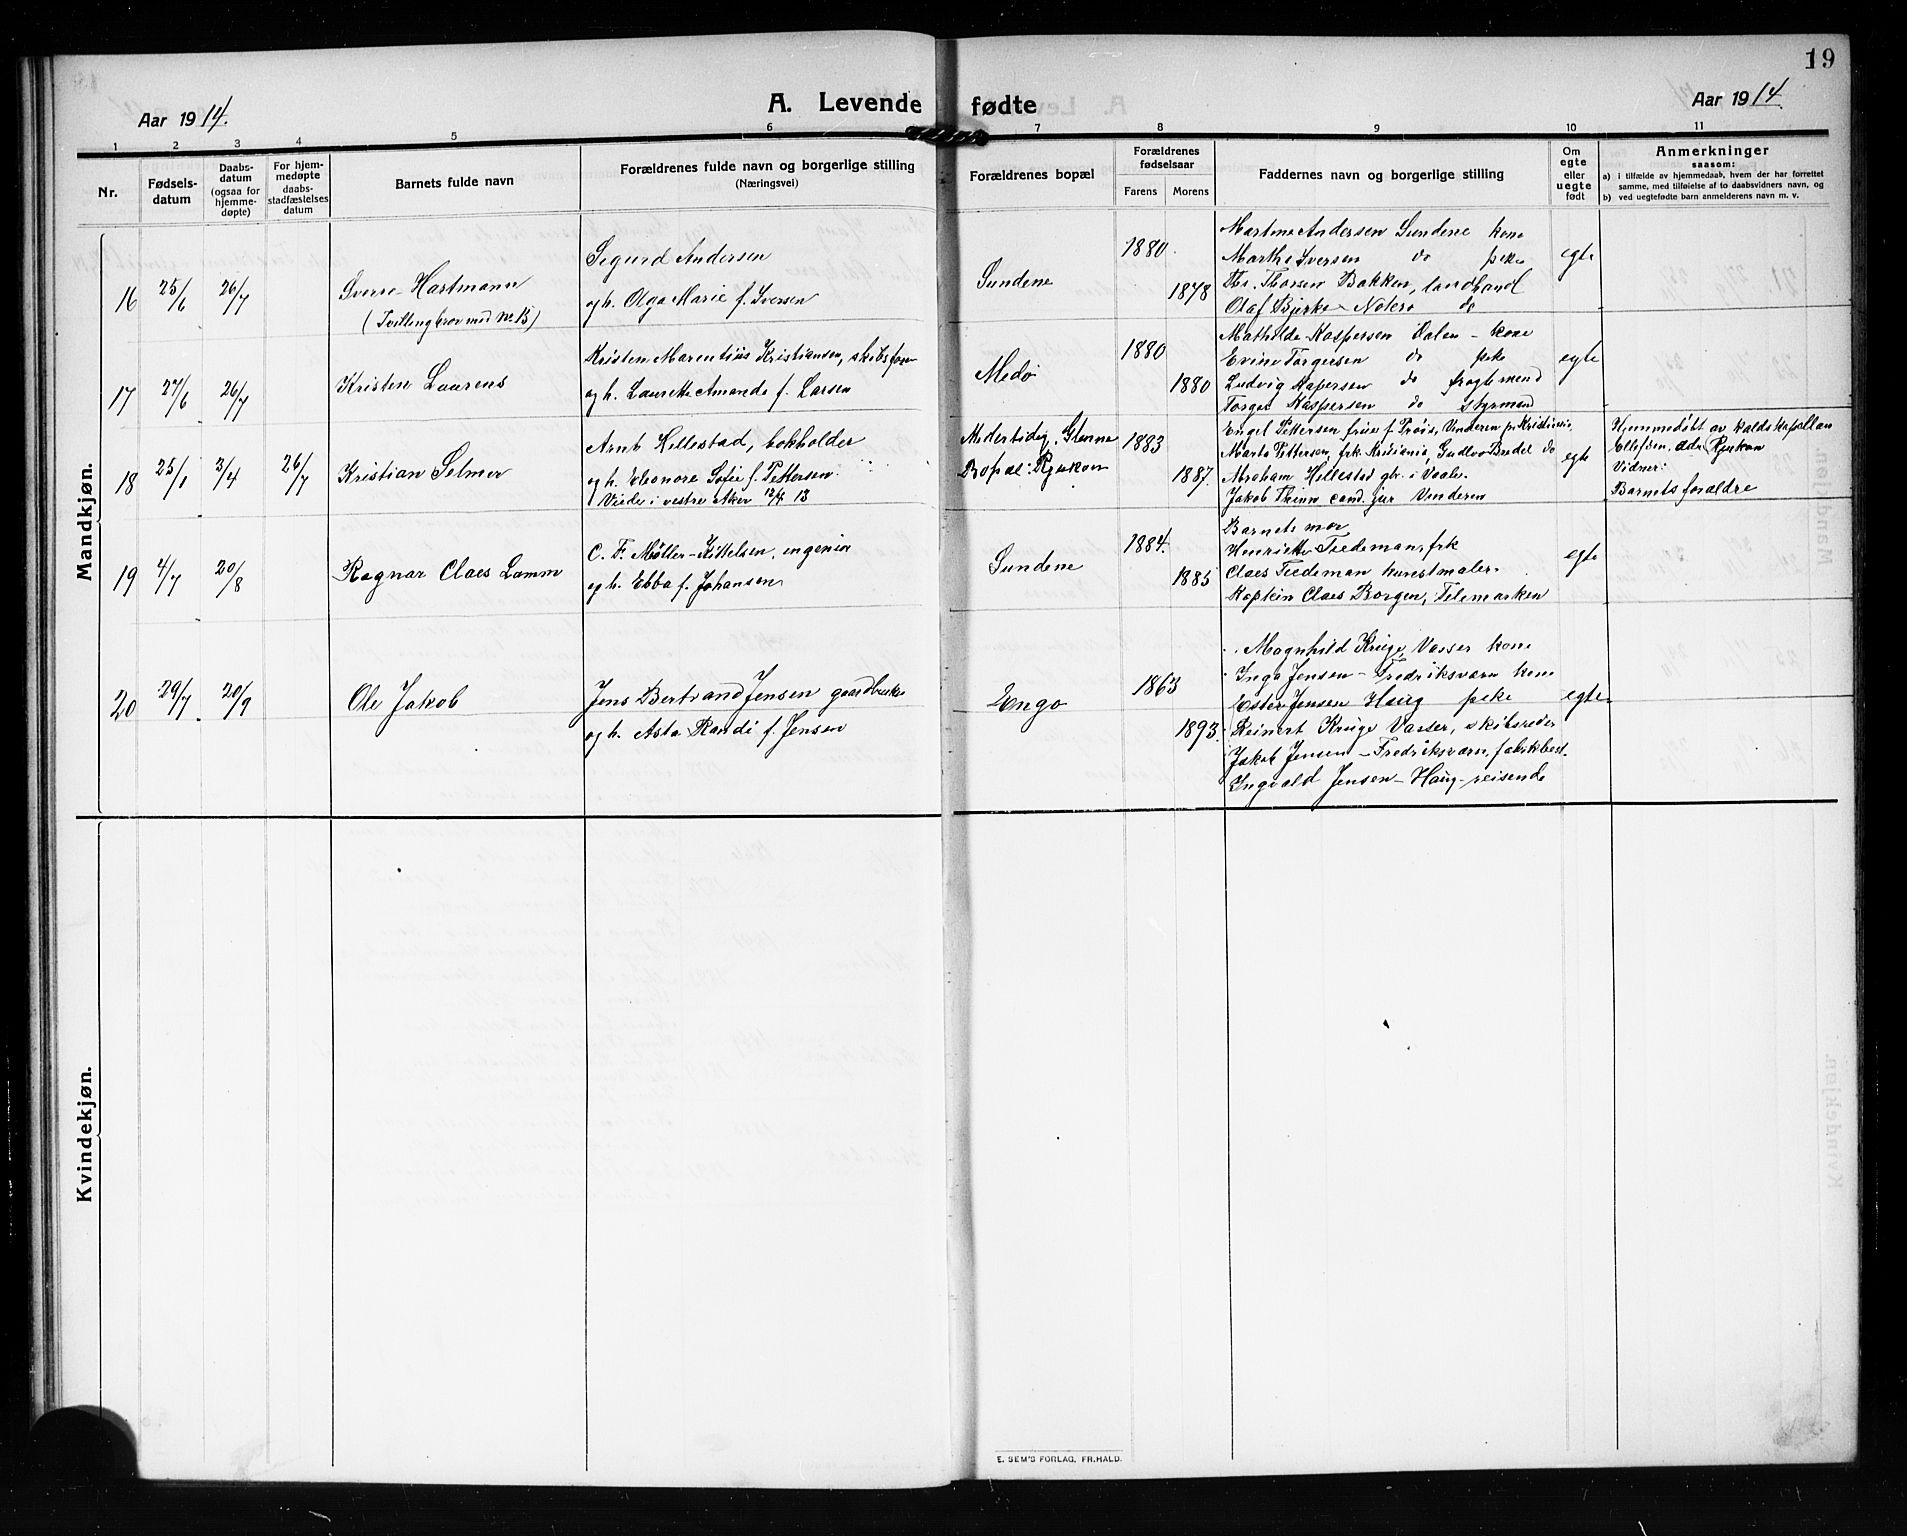 19
Aar 1914.
A. Levende fødte
Aar 1914.
1 2 3 4 5 6 7 8 9 10 11
Nr.
Fødsels-
datum
Daabs-
datum
(ogsaa for
hjemme-
døpte)
For hjem-
medøpte
daabs-
stadfæstelses
datum
Barnets fulde navn
Forældrenes fulde navn og borgerlige stilling
(Næringsvei)
Forældrenes bopæl
Forældrenes
fødselsaar
Farens Morens
Faddernes navn og borgerlige stilling
Om
egte
eller
uegte
født
Anmerkninger
saasom:
a) i tilfælde av hjemmedaab, hvem der har forrettet
samme, med tilføielse af to daabsvidners navn, og
b) ved uegtefødte barn anmelderens navn m. v.
Mandkjøn.
16 25/6 26/7
Sverre Hartmann
(Tvillingbror med No 15)
Sigurd Andersen
og h. Olga Marie f. Iversen
Sundene
1880
1878
Martine Andersen Sundene kone
Marthe Iversen do pike
Th. Thorsen Bakken, landhand
Olaf Bjerke Noterø do
egte
17 27/6 26/7
Kristen Laurens
Kristen Marentius Kristiansen, skibsfører
og h. Laurette Amande f. Larsen
Medø
1880
1880
Mathilde Kaspersen Dalen - kone
Evine Torgersen do pike
Ludvig Kaspersen do fragtemand
Torger Kaspersen do styrmand
egte
18 25/1 3/4 26/7
Kristian Selmer
Arnt Hillestad, bokholder
og h. Eleonore Sofie f. Pettersen
Viede i vestre Aker 12/4 13
Midlertidig: Glenne
Bopæl: Rjukan
1883
1887.
Engel Pettersen frue f. Prøis, Vinderen pr Kristiania
Marta Pettersen, frk. Kristiania, Gudlov Bredel do
Abraham Hillestad gbr. i Vaale.
Jakob Thinn cand. jur Vinderen
egte
Hjemmedøbt av Kaldskapellan
Ellefsen, adr. Rjukan
Vidner:
Barnets foraldre
19 4/7 20/8
Ragnar Claes Lamm
C. F. Møller-Kittelsen, ingeniør
og h. Ebba f. Johansen
Sundene
1884.
1885
Barnets mor
Henriette Tiedeman, frk
Claes Tiedeman kunstmaler
Kaptein Claes Borgen, Telemarken
egte
20 29/7 20/9
Ole Jakob
Jens Bertrand Jensen gaardbruker
og h. Asta Randi f. Jensen
Engø
1863
1893.
Magnhild Kruge, Vasser kone
Inga Jensen - Fredriksværn kone
Ester Jensen Haug pike
Reinert Kruge Vasser, skibsreder
Jakob Jensen - Fredriksværn, fabrikbest.
Ingvald Jensen - Haug - reisende
egte
Kvindekjøn.
E. SEM'S FORLAG, FR.HALD.